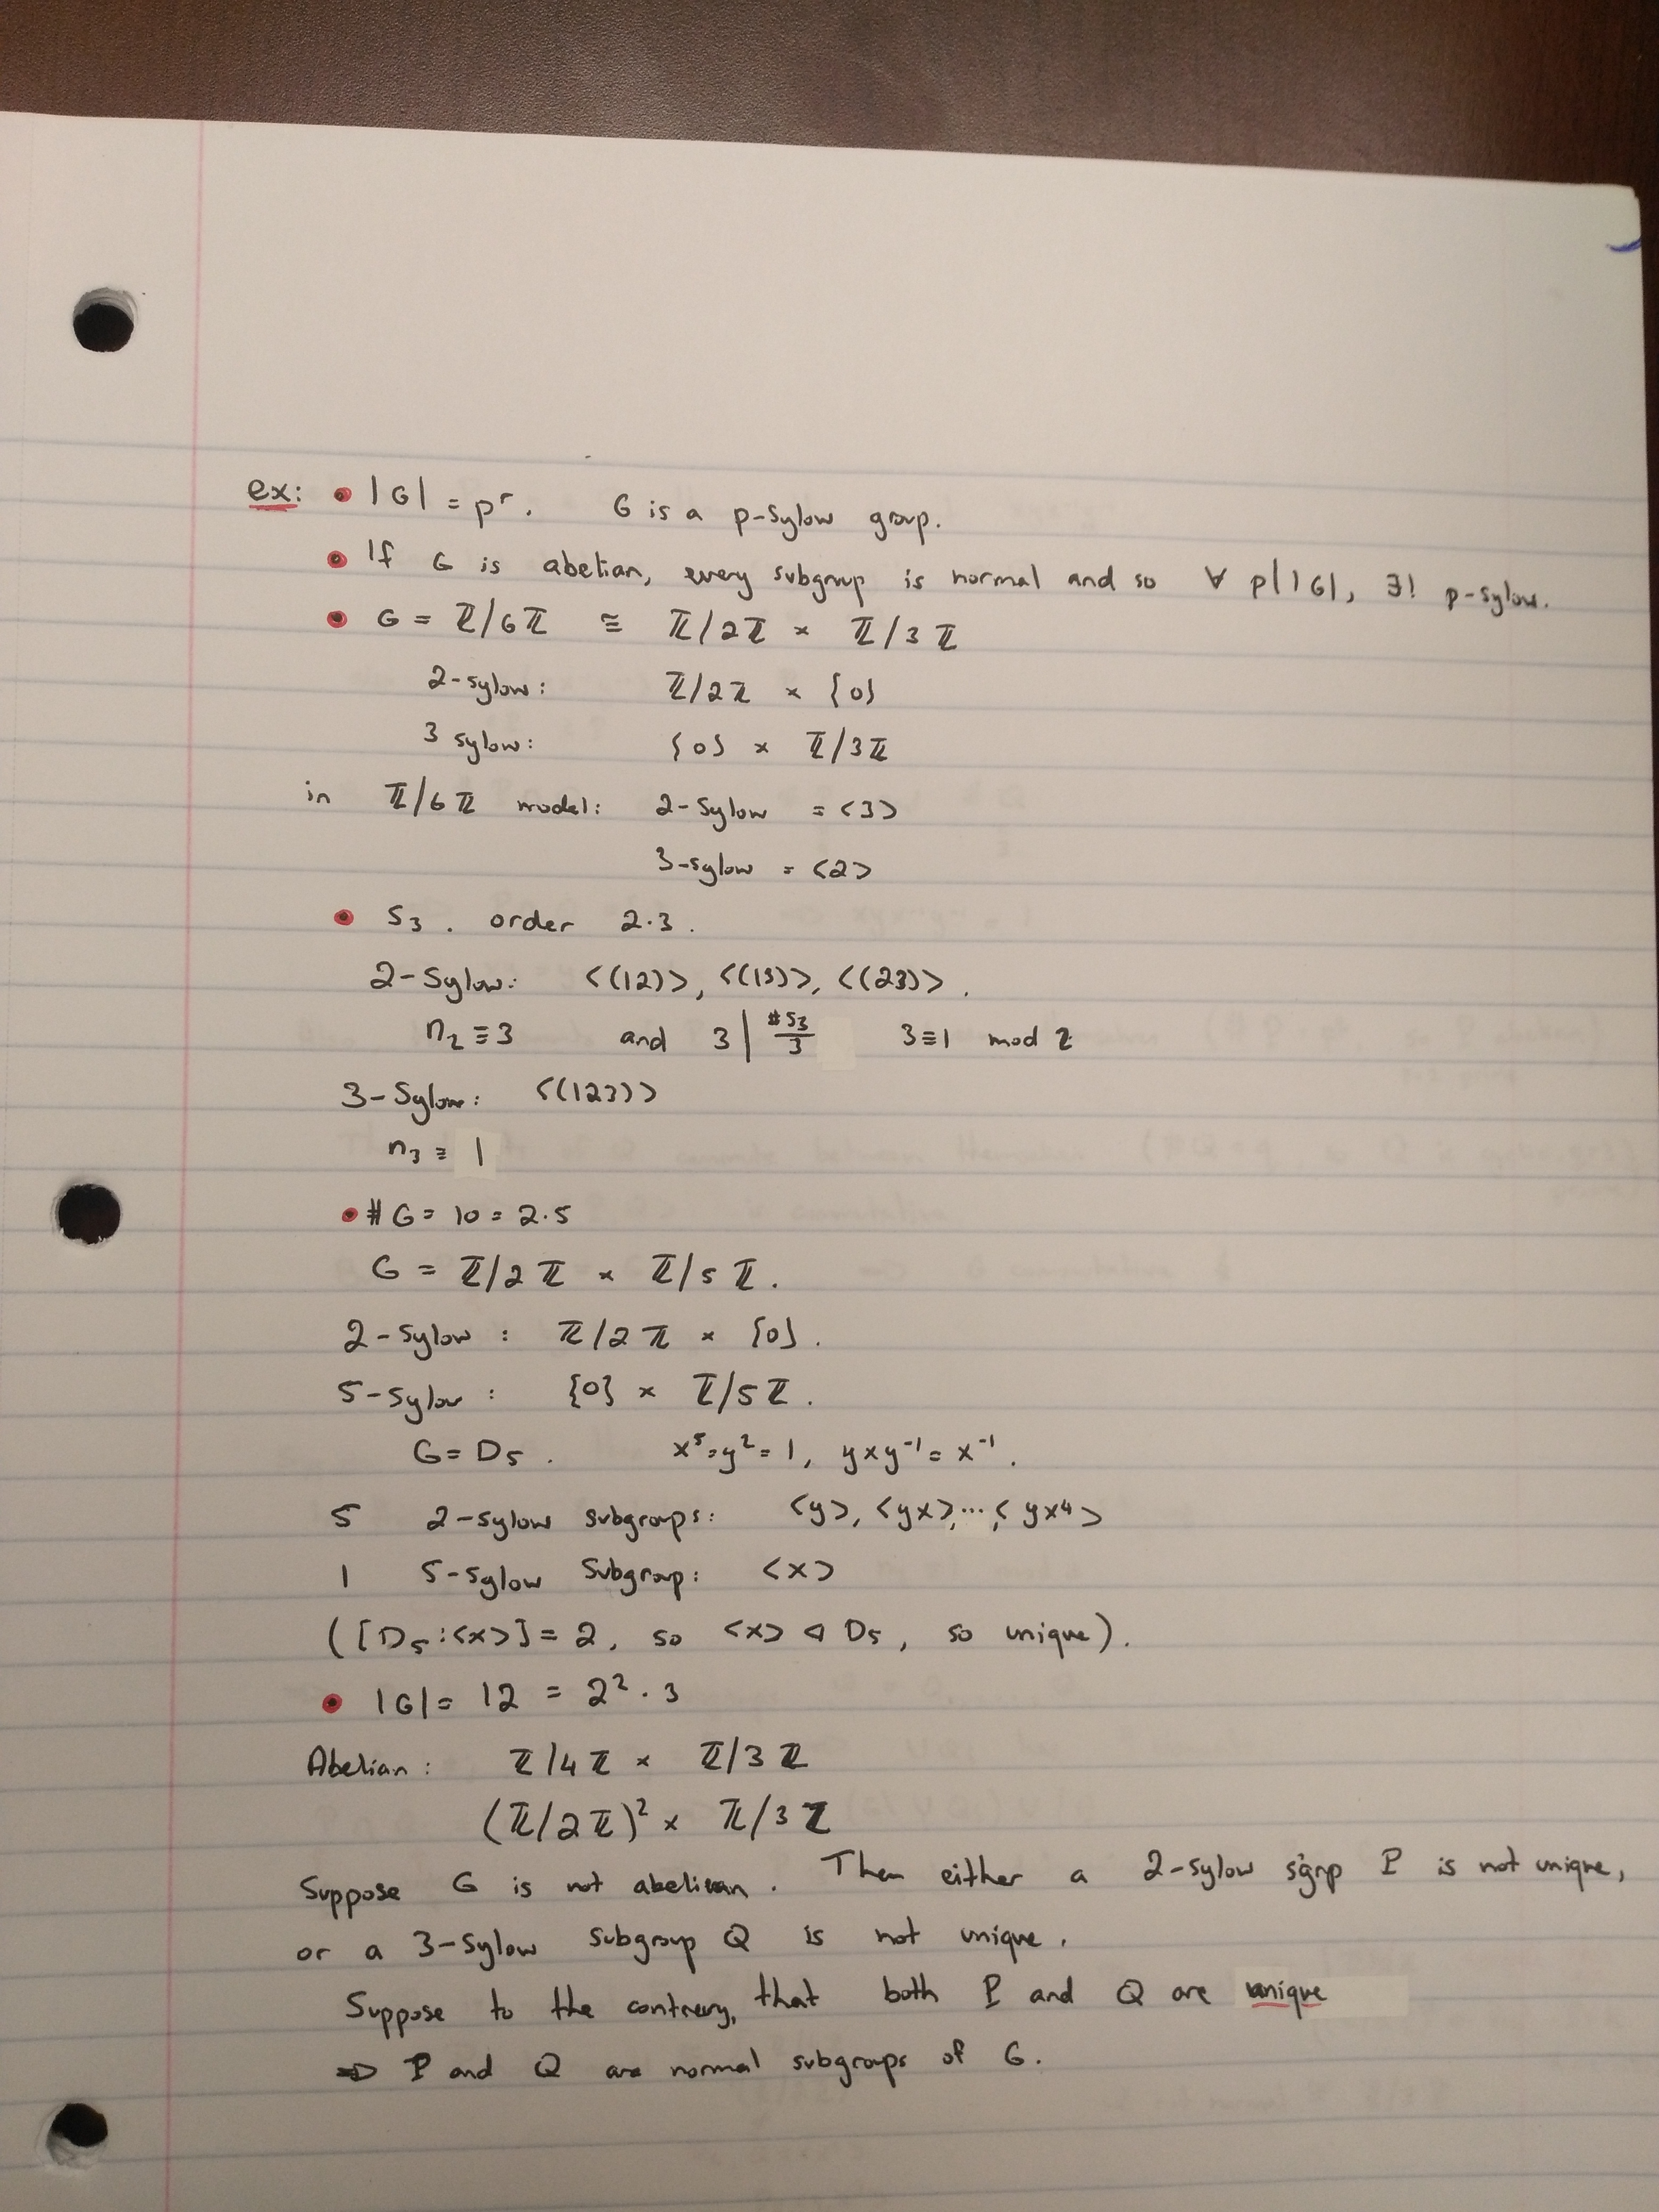 ex: • |G| = pʳ. G is a p-Sylow group.
• If G is abelian, every subgroup is normal and so ∀ p||G|, ∃! p-sylow.
• G = ℤ/6ℤ ≅ ℤ/2ℤ × ℤ/3ℤ
2-sylow: ℤ/2ℤ × {0}
3 sylow: {0} × ℤ/3ℤ
in ℤ/6ℤ model: 2-Sylow = <3>
3-sylow = <2>
• S₃. order 2·3.
2-Sylow: <(12)>, <(13)>, <(23)>.
n₂ ≡ 3 and 3 | #S₃/3 3≡1 mod 2
3-Sylow: <(123)>
n₃ ≡ 1
• #G = 10 = 2·5
G = ℤ/2ℤ × ℤ/5ℤ.
2-Sylow : ℤ/2ℤ × {0}.
5-Sylow : {0} × ℤ/5ℤ.
G = D₅. x⁵=y²=1, yxy⁻¹=x⁻¹.
5 2-sylow subgroups: <y>, <yx>,…,<yx⁴>
1 5-sylow subgroup: <x>
([D₅:<x>]=2, so <x> ◁ D₅, so unique).
• |G| = 12 = 2²·3
Abelian: ℤ/4ℤ × ℤ/3ℤ
(ℤ/2ℤ)² × ℤ/3ℤ
Suppose G is not abelian. Then either a 2-sylow sgrp P is not unique,
or a 3-Sylow subgroup Q is not unique.
Suppose to the contrary, that both P and Q are unique
⇒ P and Q are normal subgroups of G.